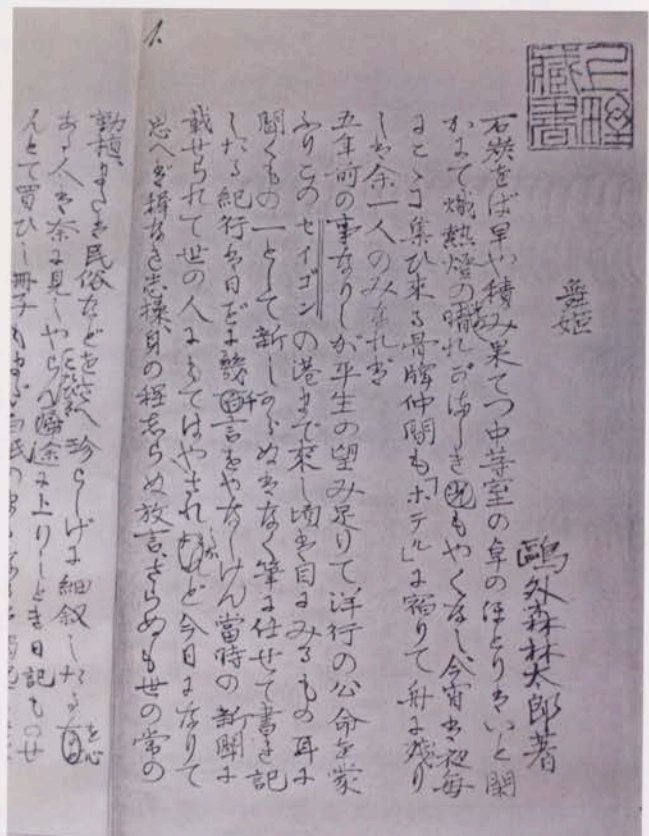 藏書
舞姫
鷗外森林太郎著
石炭をば早や積み果てつ中等室の卓のほとりはいと閑
かにて熾熱燈の晴れがましき光もやくなし今宵は夜毎
にこゝに集ひ来る骨牌仲間も「ホテル」に宿りて舟に残り
しは余一人のみなれば
五年前の事なりしが平生の望み足りて洋行の公命を蒙
ふりこのセイゴンの港まで来し頃は目にみるもの耳に
聞くもの一として新しからぬはなく筆に任せて書き記
したる紀行は日ごとに幾千言をやなしけん當時の新聞に
載せられて世の人にもてはやされしかど今日になりて
思へば穉なき志操、身の程志らぬ放言、さらぬも世の常の
1.
動植、民俗などをさへ珍らしげに細叙したるを心
ある人は奈に見しやらん途に上りしとき日記ものせ
んとて買ひし冊子もまだ白紙の